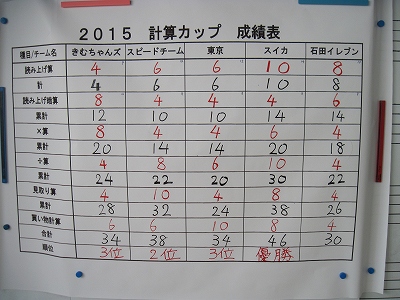 2015 計算カップ 成績表
種目/チーム名 きむちゃんズ スピードチーム 東京 スイカ 石田イレブン
読み上げ算 4 6 6 10 8
計 4 6 6 10 8
読み上げ暗算 8 4 4 4 6
累計 12 10 10 14 14
×算 8 4 4 6 4
累計 20 14 14 20 18
÷算 4 8 6 10 4
累計 24 22 20 30 22
見取り算 4 10 4 8 4
累計 28 32 24 38 26
買い物計算 6 6 10 8 4
合計 34 38 34 46 30
順位 3位 2位 3位 優勝